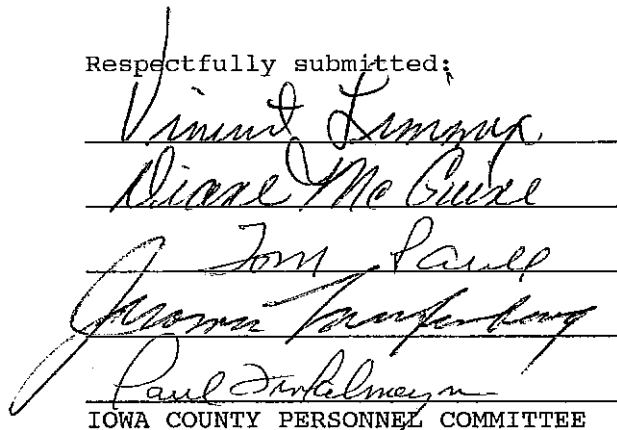 Respectfully submitted:
Vincent Limmex
Diane McGuire
Tom Paull
Jerome Laufenberg
Paul
IOWA COUNTY PERSONNEL COMMITTEE